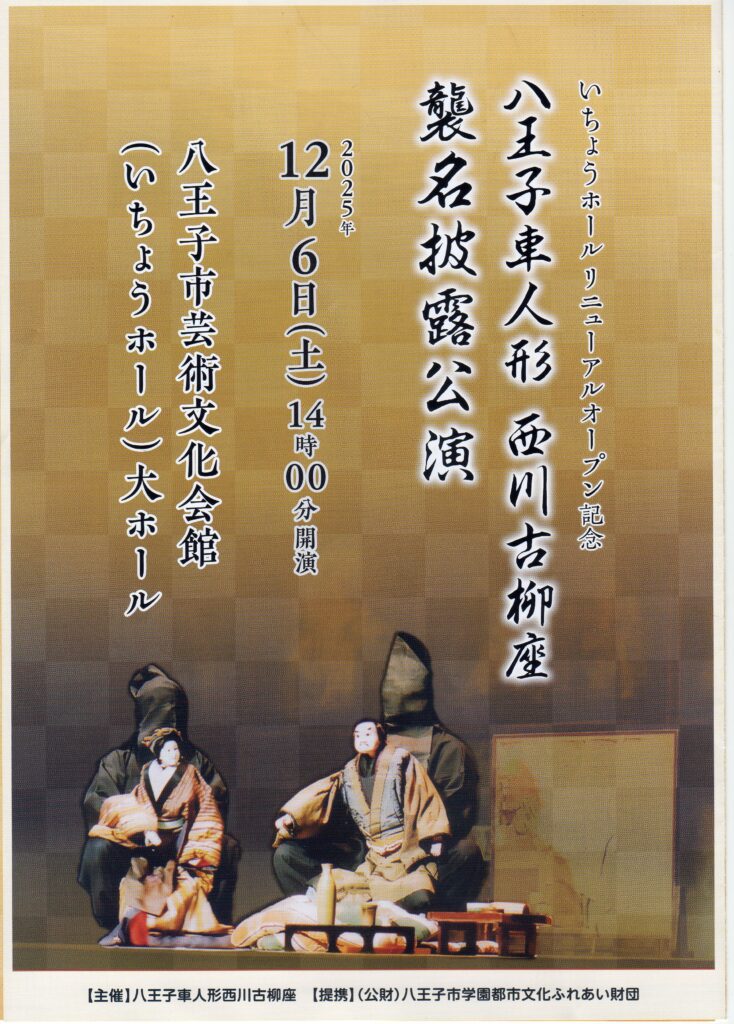 いちょうホール リニューアルオープン記念
八王子車人形 西川古柳座
襲名披露公演
2025年
12月6日(土)14時00分開演
八王子市芸術文化会館
(いちょうホール)大ホール
【主催】八王子車人形西川古柳座 【提携】(公財)八王子市学園都市文化ふれあい財団